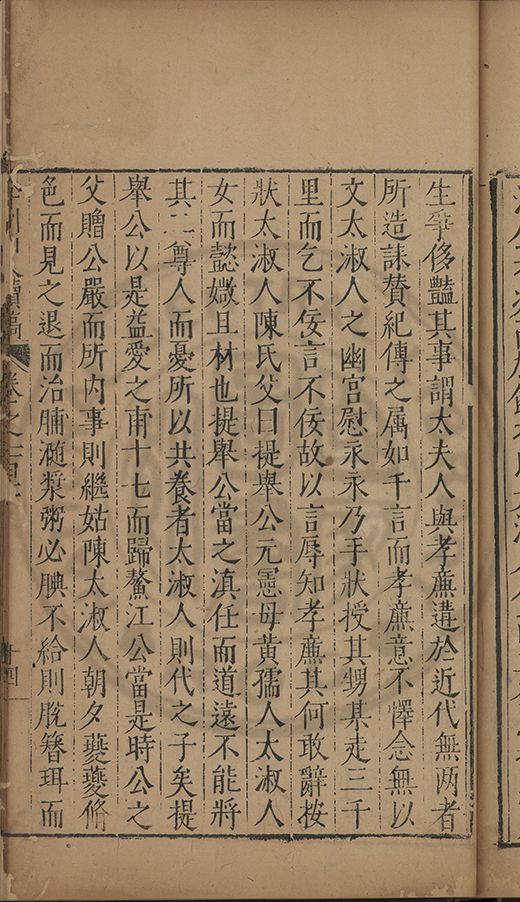 生爭侈豔其事謂太夫人與孝廉遘於近代無两者
所造誄賛紀傳之属如千言而孝廉意不懌念無以
文太淑人之幽宮慰永永乃手狀授其甥某走三千
里而乞不佞言不佞故以言辱知孝廉其何敢辭按
狀太淑人陳氏父曰提舉公元憲母黃孺人太淑人
女而懿媺且材也提舉公當之滇任而道遠不能將
其二尊人而憂所以共養者太淑人則代之子矣提
舉公以是益愛之甫十七而歸鰲江公當是時公之
父贈公嚴而所内事則繼姑陳太淑人朝夕夔夔脩
色而見之退而治脯滫漿粥必腆不給則脫簪珥而
續稿 卷之一百
十四